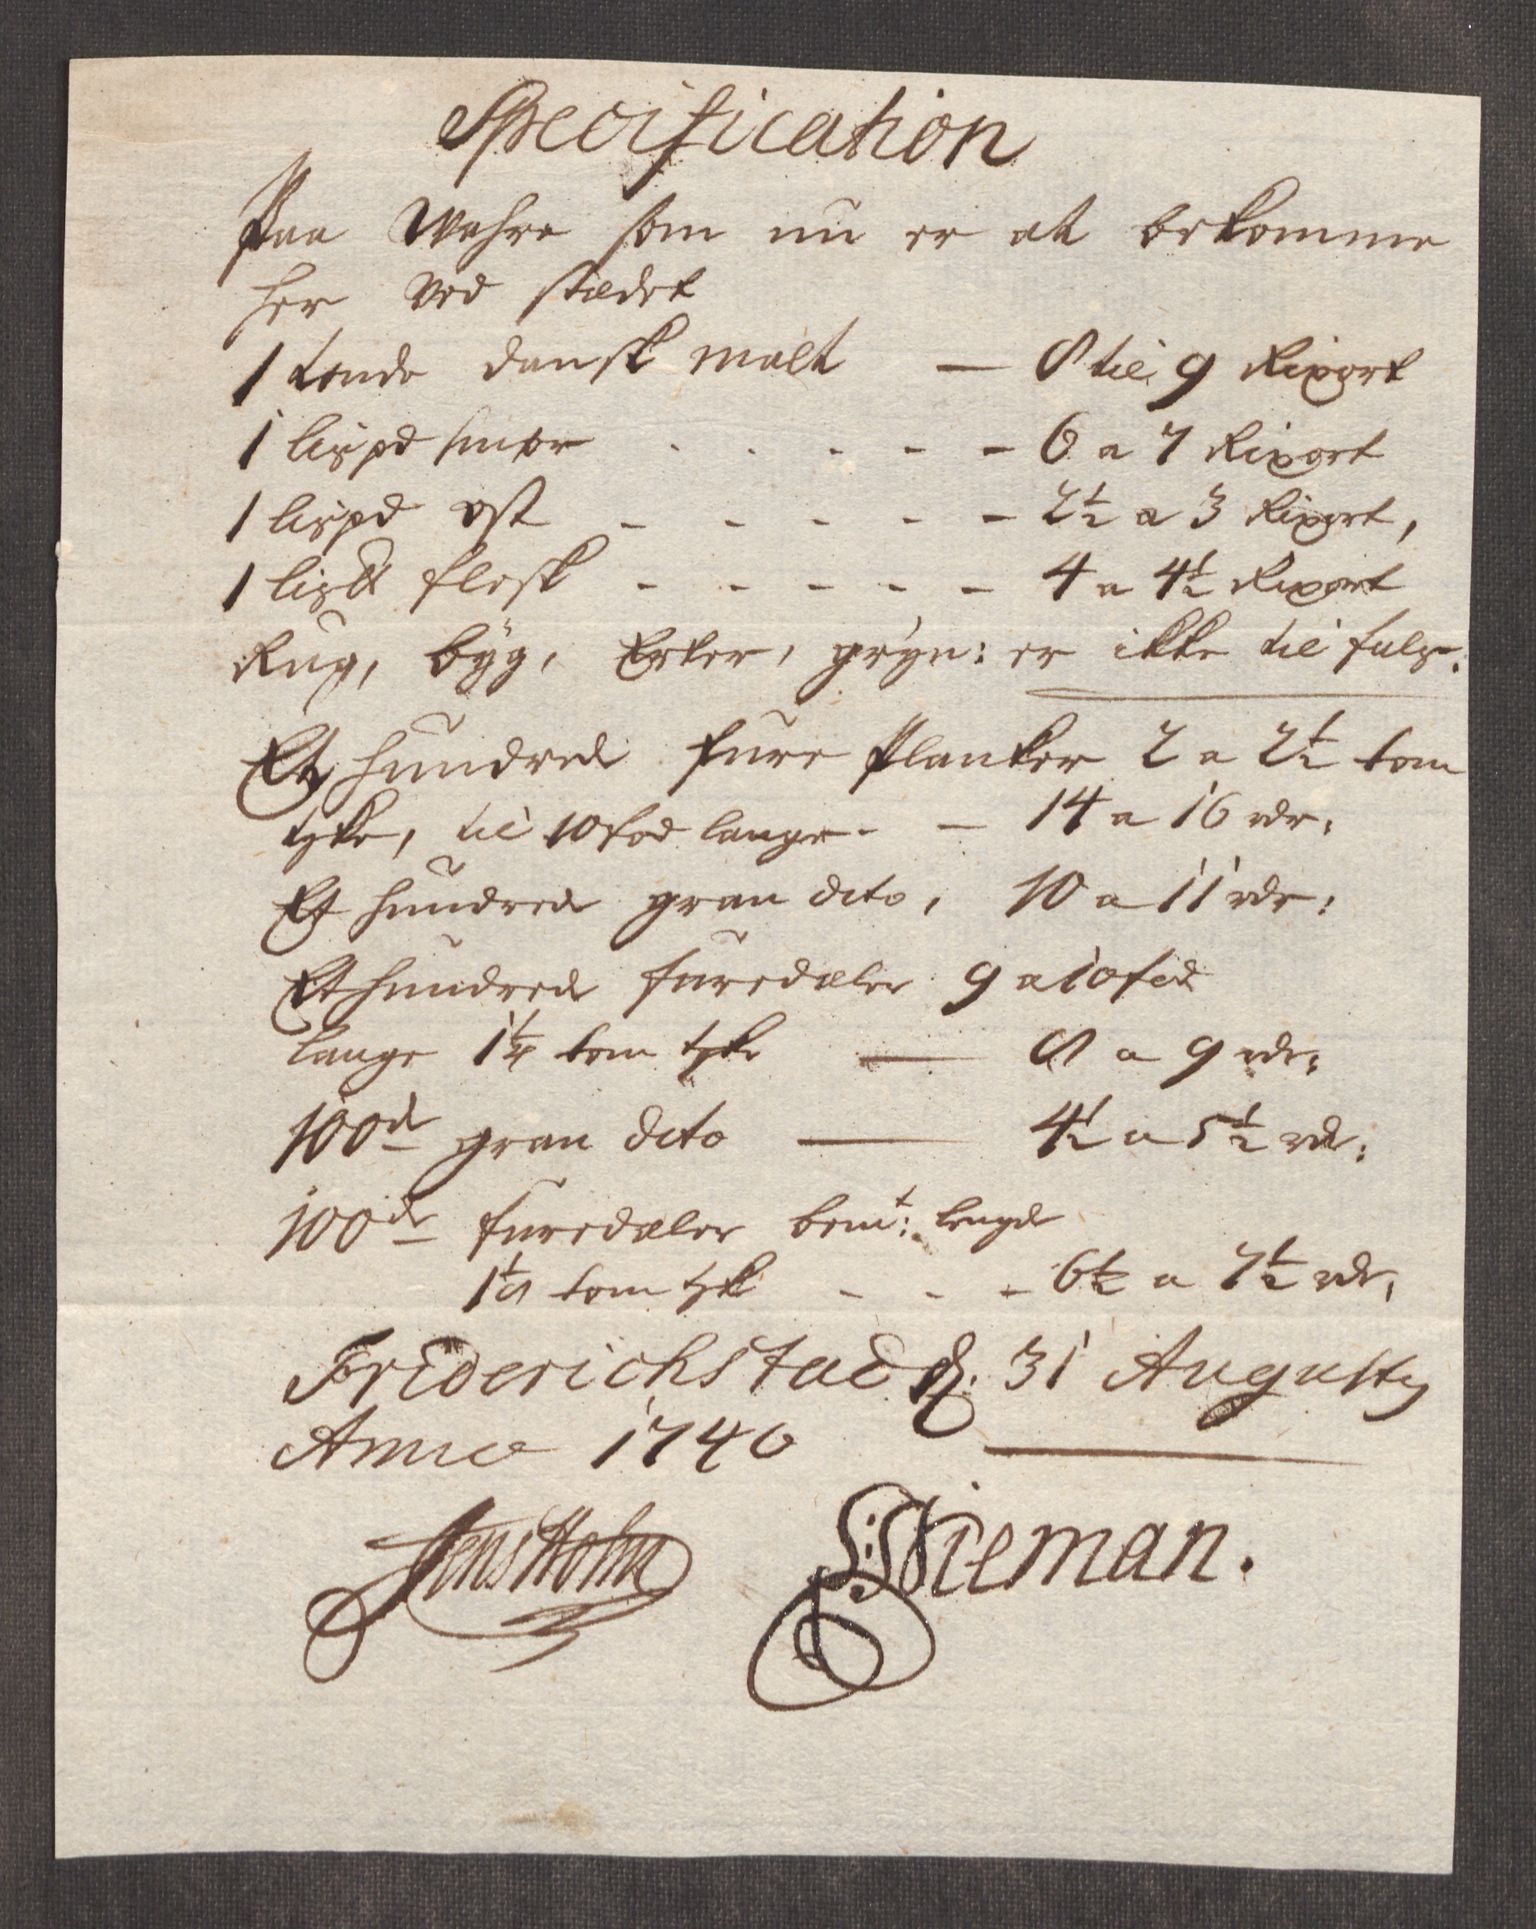 Specification
Paa Wahre som nu er at bekomme
her ved stædet
1 tønde dansk malt — 8 til 9 Rixort
1 lispd smør - - - - - 6 a 7 Rixort
1 lispd ost - - - - - 2½ a 3 Rixort,
1 lis℔ flesk - - - - - 4 a 4½ Rixort
Rug, byg, Erter, gryn: er ikke til fals.
Et hundrede fure Planker 2 a 2½ tom
tyke, til 10 fod lange - — 14 a 16 rdr:
Et hundrede gran dito, 10 a 11 rdr:
Et hundrede furedæler 9 a 10 fod
lange 1¼ tom tyke — 8 a 9 rdr:
100de gran dito — 4½ a 5½ rdr:
100de furedæler bemt: lengde
1⅛ tom tyk - - - 6½ a 7½ rdr,
Friderichstad d. 31 Augusty
Anno 1740
Jens Holm Nieman.